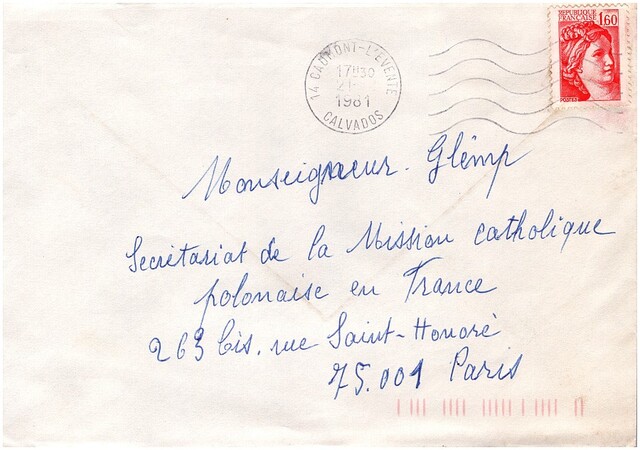 RÉPUBLIQUE
FRANÇAISE
1,60
POSTES
14 CAUMONT-L'EVENTE
17H30
21-
1981
CALVADOS
Monseigneur. Glêmp
Secrétariat de la Mission catholique
polonaise en France
263 bis. rue Saint-Honoré
75.001 Paris